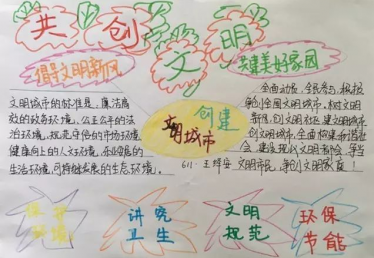 共创文明
倡导文明新风
共建美好家园
文明城市的标准是，廉洁高
效的政务环境，公正公平的法
治环境，规范守信的市场环境
健康向上的人文环境，
生活环境，可持续发展的生态环境。
创建
文明城市
全面动员，全民参与，积极
争创全国文明城市，树文明
新风，创文明社区，建文明城市
创文明城市，全面构建和谐社
会，建设现代文明都会，争当
文明市民，争创文明家庭！
611.
保护
环境
讲究
卫生
文明
规范
环保
节能